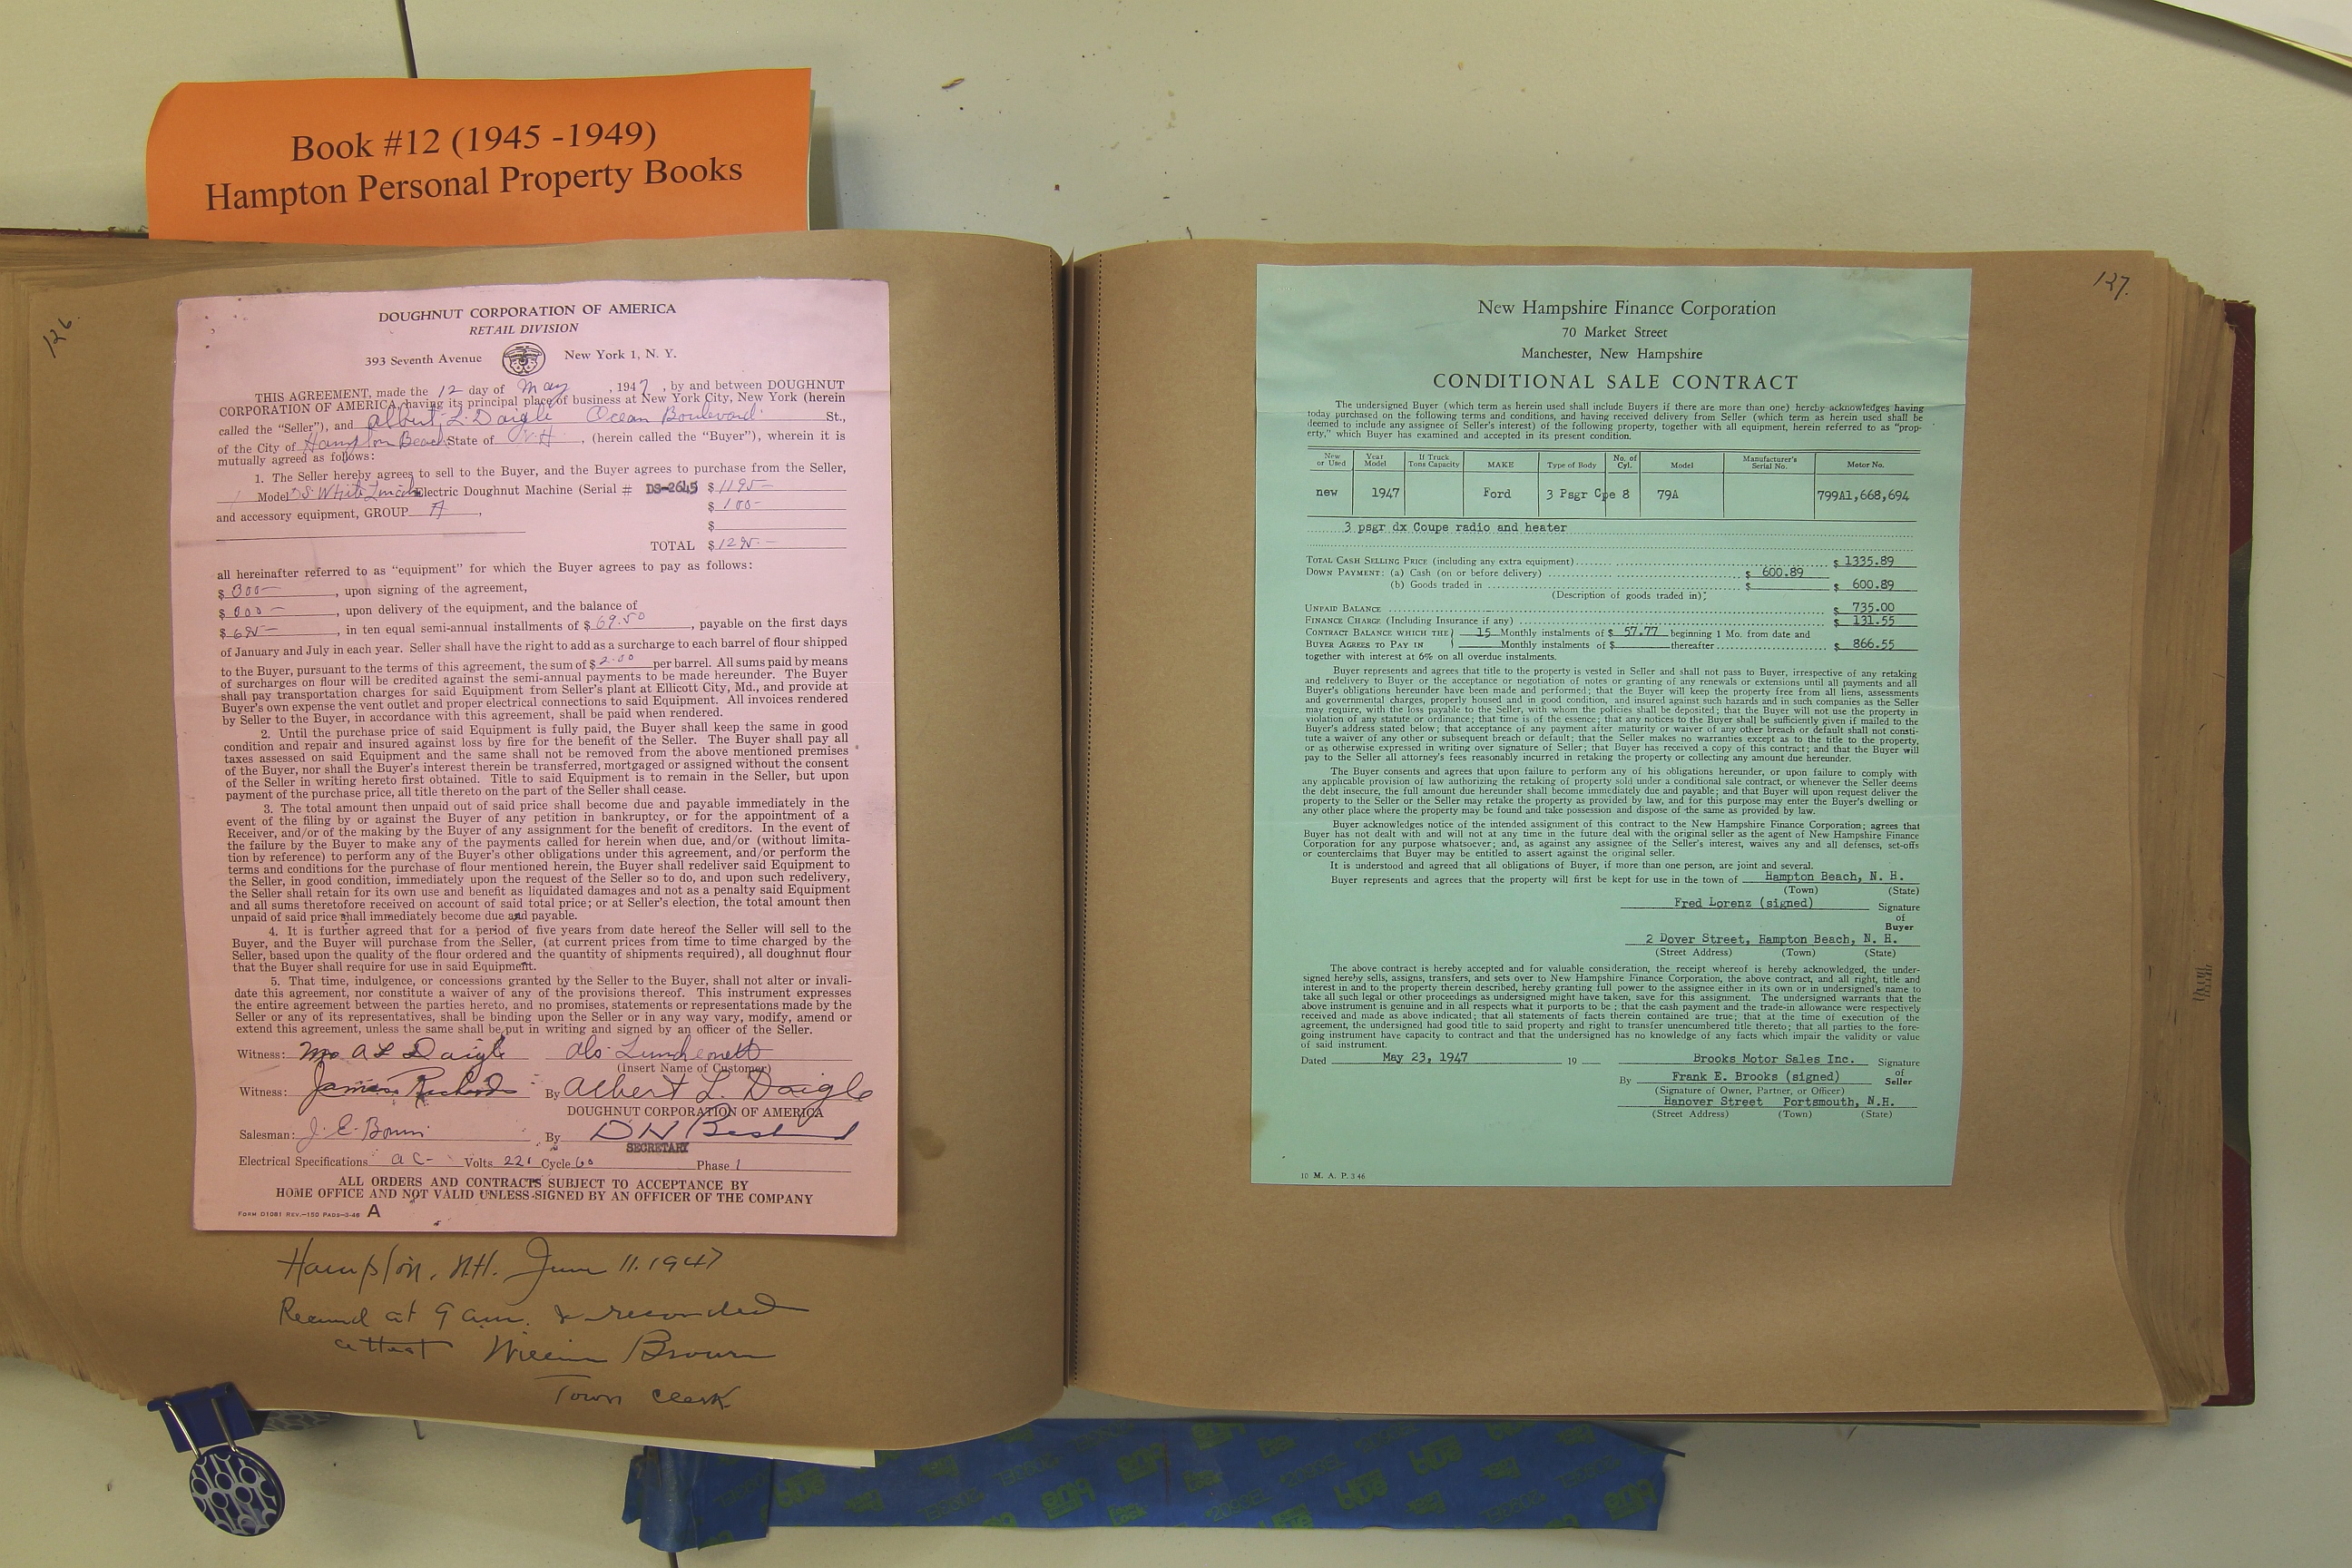 Book #12 (1945 -1949)
Hampton Personal Property Books
126.
DOUGHNUT CORPORATION OF AMERICA
RETAIL DIVISION
393 Seventh Avenue New York 1, N. Y.
THIS AGREEMENT, made the 12 day of May, 1947, by and between DOUGHNUT
CORPORATION OF AMERICA, having its principal place of business at New York City, New York (herein
called the "Seller"), and Albert L. Daigle Ocean Boulevard St.,
of the City of Hampton Beach State of N H, (herein called the "Buyer"), wherein it is
mutually agreed as follows:
1. The Seller hereby agrees to sell to the Buyer, and the Buyer agrees to purchase from the Seller,
1 Model DS White Electric Doughnut Machine (Serial # DS-2645 $ 1195-
and accessory equipment, GROUP A, $ 100-
$
TOTAL $ 1295.-
all hereinafter referred to as "equipment" for which the Buyer agrees to pay as follows:
$ , upon signing of the agreement,
$ , upon delivery of the equipment, and the balance of
$ 695-, in ten equal semi-annual installments of $ 69.50, payable on the first days
of January and July in each year. Seller shall have the right to add as a surcharge to each barrel of flour shipped
to the Buyer, pursuant to the terms of this agreement, the sum of $ 2.00 per barrel. All sums paid by means
of surcharges on flour will be credited against the semi-annual payments to be made hereunder. The Buyer
shall pay transportation charges for said Equipment from Seller's plant at Ellicott City, Md., and provide at
Buyer's own expense the vent outlet and proper electrical connections to said Equipment. All invoices rendered
by Seller to the Buyer, in accordance with this agreement, shall be paid when rendered.
2. Until the purchase price of said Equipment is fully paid, the Buyer shall keep the same in good
condition and repair and insured against loss by fire for the benefit of the Seller. The Buyer shall pay all
taxes assessed on said Equipment and the same shall not be removed from the above mentioned premises
of the Buyer, nor shall the Buyer's interest therein be transferred, mortgaged or assigned without the consent
of the Seller in writing hereto first obtained. Title to said Equipment is to remain in the Seller, but upon
payment of the purchase price, all title thereto on the part of the Seller shall cease.
3. The total amount then unpaid out of said price shall become due and payable immediately in the
event of the filing by or against the Buyer of any petition in bankruptcy, or for the appointment of a
Receiver, and/or of the making by the Buyer of any assignment for the benefit of creditors. In the event of
the failure by the Buyer to make any of the payments called for herein when due, and/or (without limita-
tion by reference) to perform any of the Buyer's other obligations under this agreement, and/or perform the
terms and conditions for the purchase of flour mentioned herein, the Buyer shall redeliver said Equipment to
the Seller, in good condition, immediately upon the request of the Seller so to do, and upon such redelivery,
the Seller shall retain for its own use and benefit as liquidated damages and not as a penalty said Equipment
and all sums theretofore received on account of said total price; or at Seller's election, the total amount then
unpaid of said price shall immediately become due and payable.
4. It is further agreed that for a period of five years from date hereof the Seller will sell to the
Buyer, and the Buyer will purchase from the Seller, (at current prices from time to time charged by the
Seller, based upon the quality of the flour ordered and the quantity of shipments required), all doughnut flour
that the Buyer shall require for use in said Equipment.
5. That time, indulgence, or concessions granted by the Seller to the Buyer, shall not alter or invali-
date this agreement, nor constitute a waiver of any of the provisions thereof. This instrument expresses
the entire agreement between the parties hereto, and no promises, statements or representations made by the
Seller or any of its representatives, shall be binding upon the Seller or in any way vary, modify, amend or
extend this agreement, unless the same shall be put in writing and signed by an officer of the Seller.
Witness: Mrs A L Daigle Als Luncheonett
(Insert Name of Customer)
Witness: James By Albert L. Daigle
DOUGHNUT CORPORATION OF AMERICA
Salesman: J. E. By D N
SECRETARY
Electrical Specifications AC- Volts 221 Cycle 60 Phase 1
ALL ORDERS AND CONTRACTS SUBJECT TO ACCEPTANCE BY
HOME OFFICE AND NOT VALID UNLESS SIGNED BY AN OFFICER OF THE COMPANY
FORM D1081 REV.—150 PADS—3-46 A
Hampton, N.H. June 11, 1947
Received at 9 am. & recorded
attest William Brown
Town Clerk
127.
New Hampshire Finance Corporation
70 Market Street
Manchester, New Hampshire
CONDITIONAL SALE CONTRACT
The undersigned Buyer (which term as herein used shall include Buyers if there are more than one) hereby acknowledges having
today purchased on the following terms and conditions, and having received delivery from Seller (which term as herein used shall be
deemed to include any assignee of Seller's interest) of the following property, together with all equipment, herein referred to as "prop-
erty," which Buyer has examined and accepted in its present condition.
New or Used Year Model If Truck Tons Capacity MAKE Type of Body No. of Cyl. Model Manufacturer's Serial No. Motor No.
new 1947 Ford 3 Psgr Cpe 8 79A 799A1,668,694
3 psgr dx Coupe radio and heater
TOTAL CASH SELLING PRICE (including any extra equipment) $ 1335.89
DOWN PAYMENT: (a) Cash (on or before delivery) $ 600.89
(b) Goods traded in $ $ 600.89
(Description of goods traded in);
UNPAID BALANCE $ 735.00
FINANCE CHARGE (Including Insurance if any) $ 131.55
CONTRACT BALANCE WHICH THE 15 Monthly instalments of $ 57.77 beginning 1 Mo. from date and
BUYER AGREES TO PAY IN Monthly instalments of $ thereafter $ 866.55
together with interest at 6% on all overdue instalments.
Buyer represents and agrees that title to the property is vested in Seller and shall not pass to Buyer, irrespective of any retaking
and redelivery to Buyer or the acceptance or negotiation of notes or granting of any renewals or extensions until all payments and all
Buyer's obligations hereunder have been made and performed; that the Buyer will keep the property free from all liens, assessments
and governmental charges, properly housed and in good condition, and insured against such hazards and in such companies as the Seller
may require, with the loss payable to the Seller, with whom the policies shall be deposited; that the Buyer will not use the property in
violation of any statute or ordinance; that time is of the essence; that any notices to the Buyer shall be sufficiently given if mailed to the
Buyer's address stated below; that acceptance of any payment after maturity or waiver of any other breach or default shall not consti-
tute a waiver of any other or subsequent breach or default; that the Seller makes no warranties except as to the title to the property,
or as otherwise expressed in writing over signature of Seller; that Buyer has received a copy of this contract; and that the Buyer will
pay to the Seller all attorney's fees reasonably incurred in retaking the property or collecting any amount due hereunder.
The Buyer consents and agrees that upon failure to perform any of his obligations hereunder, or upon failure to comply with
any applicable provision of law authorizing the retaking of property sold under a conditional sale contract, or whenever the Seller deems
the debt insecure, the full amount due hereunder shall become immediately due and payable; and that Buyer will upon request deliver the
property to the Seller or the Seller may retake the property as provided by law, and for this purpose may enter the Buyer's dwelling or
any other place where the property may be found and take possession and dispose of the same as provided by law.
Buyer acknowledges notice of the intended assignment of this contract to the New Hampshire Finance Corporation; agrees that
Buyer has not dealt with and will not at any time in the future deal with the original seller as the agent of New Hampshire Finance
Corporation for any purpose whatsoever; and, as against any assignee of the Seller's interest, waives any and all defenses, set-offs
or counterclaims that Buyer may be entitled to assert against the original seller.
It is understood and agreed that all obligations of Buyer, if more than one person, are joint and several.
Buyer represents and agrees that the property will first be kept for use in the town of Hampton Beach, N. H.
(Town) (State)
Fred Lorenz (signed) Signature of Buyer
2 Dover Street, Hampton Beach, N. H.
(Street Address) (Town) (State)
The above contract is hereby accepted and for valuable consideration, the receipt whereof is hereby acknowledged, the under-
signed hereby sells, assigns, transfers, and sets over to New Hampshire Finance Corporation, the above contract, and all right, title and
interest in and to the property therein described, hereby granting full power to the assignee either in its own or in undersigned's name to
take all such legal or other proceedings as undersigned might have taken, save for this assignment. The undersigned warrants that the
above instrument is genuine and in all respects what it purports to be; that the cash payment and the trade-in allowance were respectively
received and made as above indicated; that all statements of facts therein contained are true; that at the time of execution of the
agreement, the undersigned had good title to said property and right to transfer unencumbered title thereto; that all parties to the fore-
going instrument have capacity to contract and that the undersigned has no knowledge of any facts which impair the validity or value
of said instrument.
Dated May 23, 1947 19 Brooks Motor Sales Inc. Signature of Seller
By Frank E. Brooks (signed)
(Signature of Owner, Partner, or Officer)
Hanover Street Portsmouth, N.H.
(Street Address) (Town) (State)
10 M. A. P. 3 46